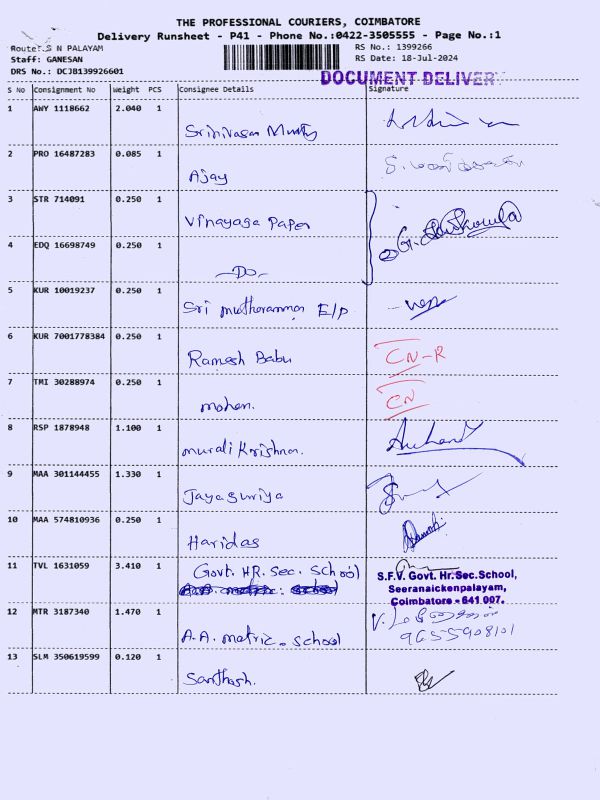 THE PROFESSIONAL COURIERS, COIMBATORE
Delivery Runsheet - P41 - Phone No.:0422-3505555 - Page No.:1
Route: S N PALAYAM
RS No.: 1399266
Staff: GANESAN
RS Date: 18-Jul-2024
DRS No.: DCJB139926601
DOCUMENT DELIVER
S No Consignment No Weight PCS Consignee Details Signature
1 AWY 1118662 2.040 1
Srinivasan Murthy
2 PRO 16487283 0.085 1
Ajay
3 STR 714091 0.250 1
Vinayaga Paper
4 EDQ 16698749 0.250 1
—Do—
5 KUR 10019237 0.250 1
Sri mutharamman E/P
6 KUR 7001778384 0.250 1
Ramesh Babu CN-R
7 TMI 30288974 0.250 1
mohan. CN
8 RSP 1878948 1.100 1
murali Krishnan.
9 MAA 301144455 1.330 1
Jayasuriya
10 MAA 574810936 0.250 1
Haridas
11 TVL 1631059 3.410 1
Govt. HR. Sec. School
S.F.V. Govt. Hr.Sec.School,
Seeranaickenpalayam,
Coimbatore - 641 007.
12 MTR 3187340 1.470 1
A.A. matric. school
9655908101
13 SLM 350619599 0.120 1
Santhosh.